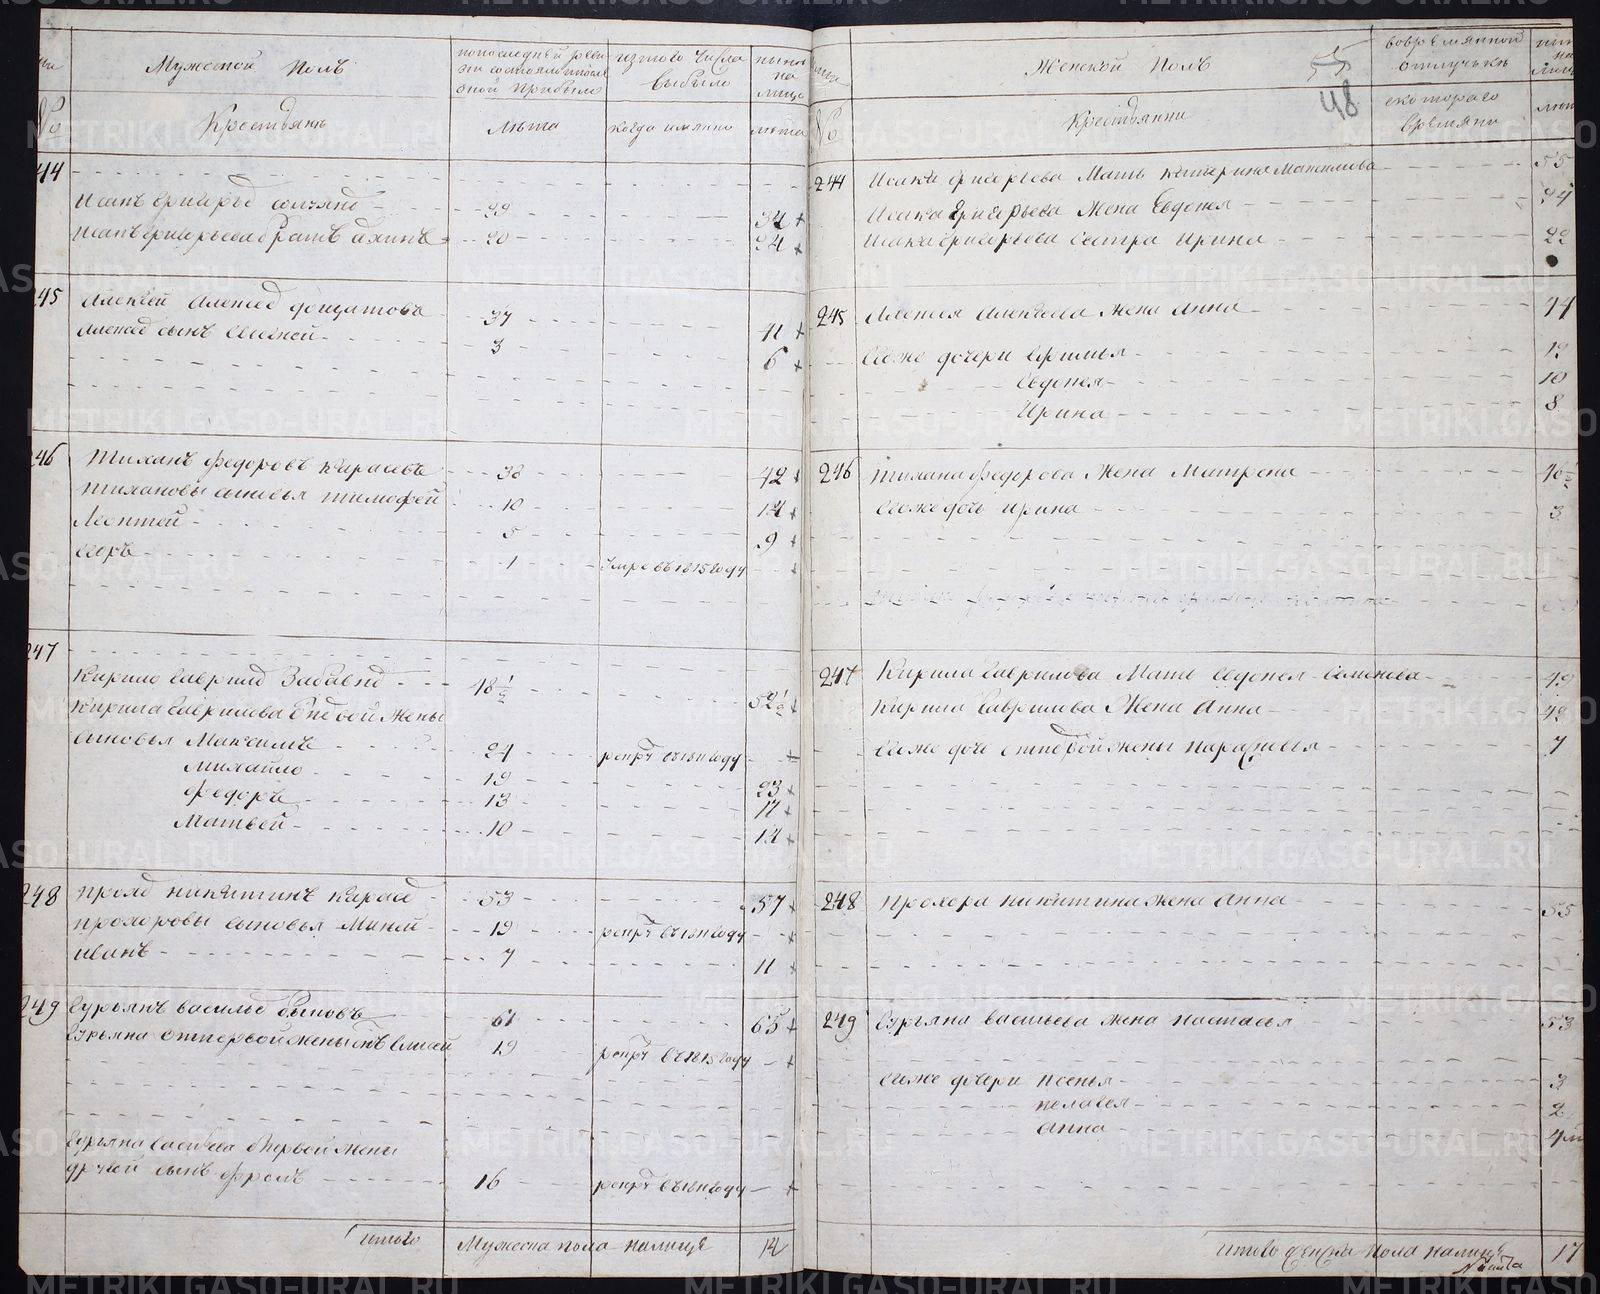 Мужеской полъ
по последней реви
зіи состояло и после
оной прибыло
изтого числа
выбыло
ныне
на
лицо
№
Крестьянъ
Лѣта
когда имянно
лѣта
44
Исакъ Григорьевъ
29
34
Исакъ Григорьева братъ
20
24
245
Алексей Алексеев
37
41
Алексеев сынъ Евсевей
3
6
246
Тиханъ Федоровъ Карасевъ
38
42
Тихановы сыновья Тимофей
10
14
Леонтей
5
9
Егоръ
1
умре въ 1815 году
247
Кирило Гаврилов
48 1/2
52 1/2
Кирила Гаврилева жены
сыновья Максимъ
24
рекру въ 1811 году
Михайло
19
23
Федоръ
13
17
Матвей
10
14
248
Прохор Никитинъ Карасев
53
57
Прохоровы сыновья Миней
19
рекру въ 1811 году
Иванъ
7
11
249
Гурьянъ Васильев Быковъ
61
65
Гурьяна от первой жены сынъ Елисей
19
рекру въ 1815 году
Гурьяна Васильева от первой жены
другой сынъ Фролъ
16
рекру въ 1811 году
итого
Мужеска пола налицо
14
Женской полъ
55
48
вовременной
отлучьке
ныне
на
лицо
№
Крестьянки
скотораго
времяни
лѣта
244
Исака Григорьева мать Катерина Максимова
55
Исака Григорьева жена Евдокея
34
Исака Григорьева сестра Ирина
22
245
Алексея Алексеева жена Анна
44
Ево же дочери Ефимья
12
Евдокея
10
Ирина
8
246
Тихана Федорова жена Матрена
46 1/2
Ево же дочь Ирина
3
247
Кирила Гаврилова мать Евдокея Семенова
Кирила Гаврилова жена Анна
Ево же дочь от первой жены Парасковья
7
248
Прохора Никитина жена Анна
55
249
Гурьяна Васильева жена Настасья
53
Ево же дочери Ксенья
3
Пелагея
2
Анна
итого женска пола налицо
17